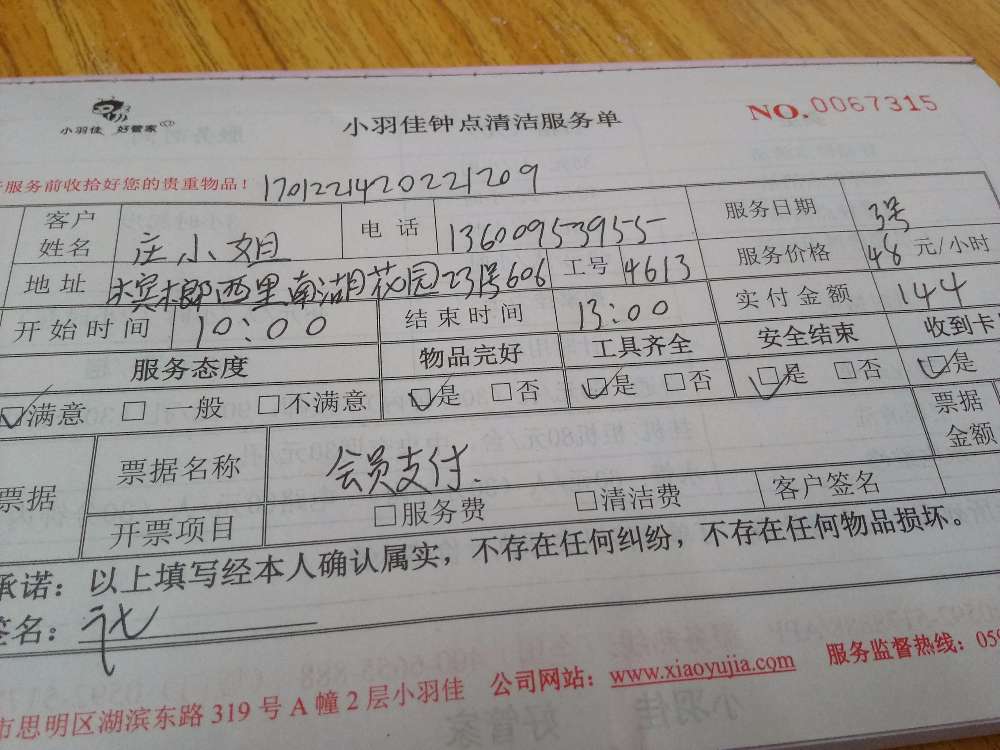 小羽佳 好管家
小羽佳钟点清洁服务单
NO.0067315
服务前收拾好您的贵重物品！ 1701221420221209
客户姓名 庄小姐 电话 13600953955 服务日期 3号
地址 槟榔西里南湖花园23号606 工号 4613 服务价格 48 元/小时
开始时间 10:00 结束时间 13:00 实付金额 144
服务态度 物品完好 工具齐全 安全结束 收到卡
☑满意 □一般 □不满意 ☑是 □否 ☑是 □否 ☑是 □否 ☑是
票据 票据名称 会员支付. 票据金额
开票项目 □服务费 □清洁费 客户签名
承诺：以上填写经本人确认属实，不存在任何纠纷，不存在任何物品损坏。
签名：
市思明区湖滨东路319号A幢2层小羽佳 公司网站：www.xiaoyujia.com 服务监督热线：059